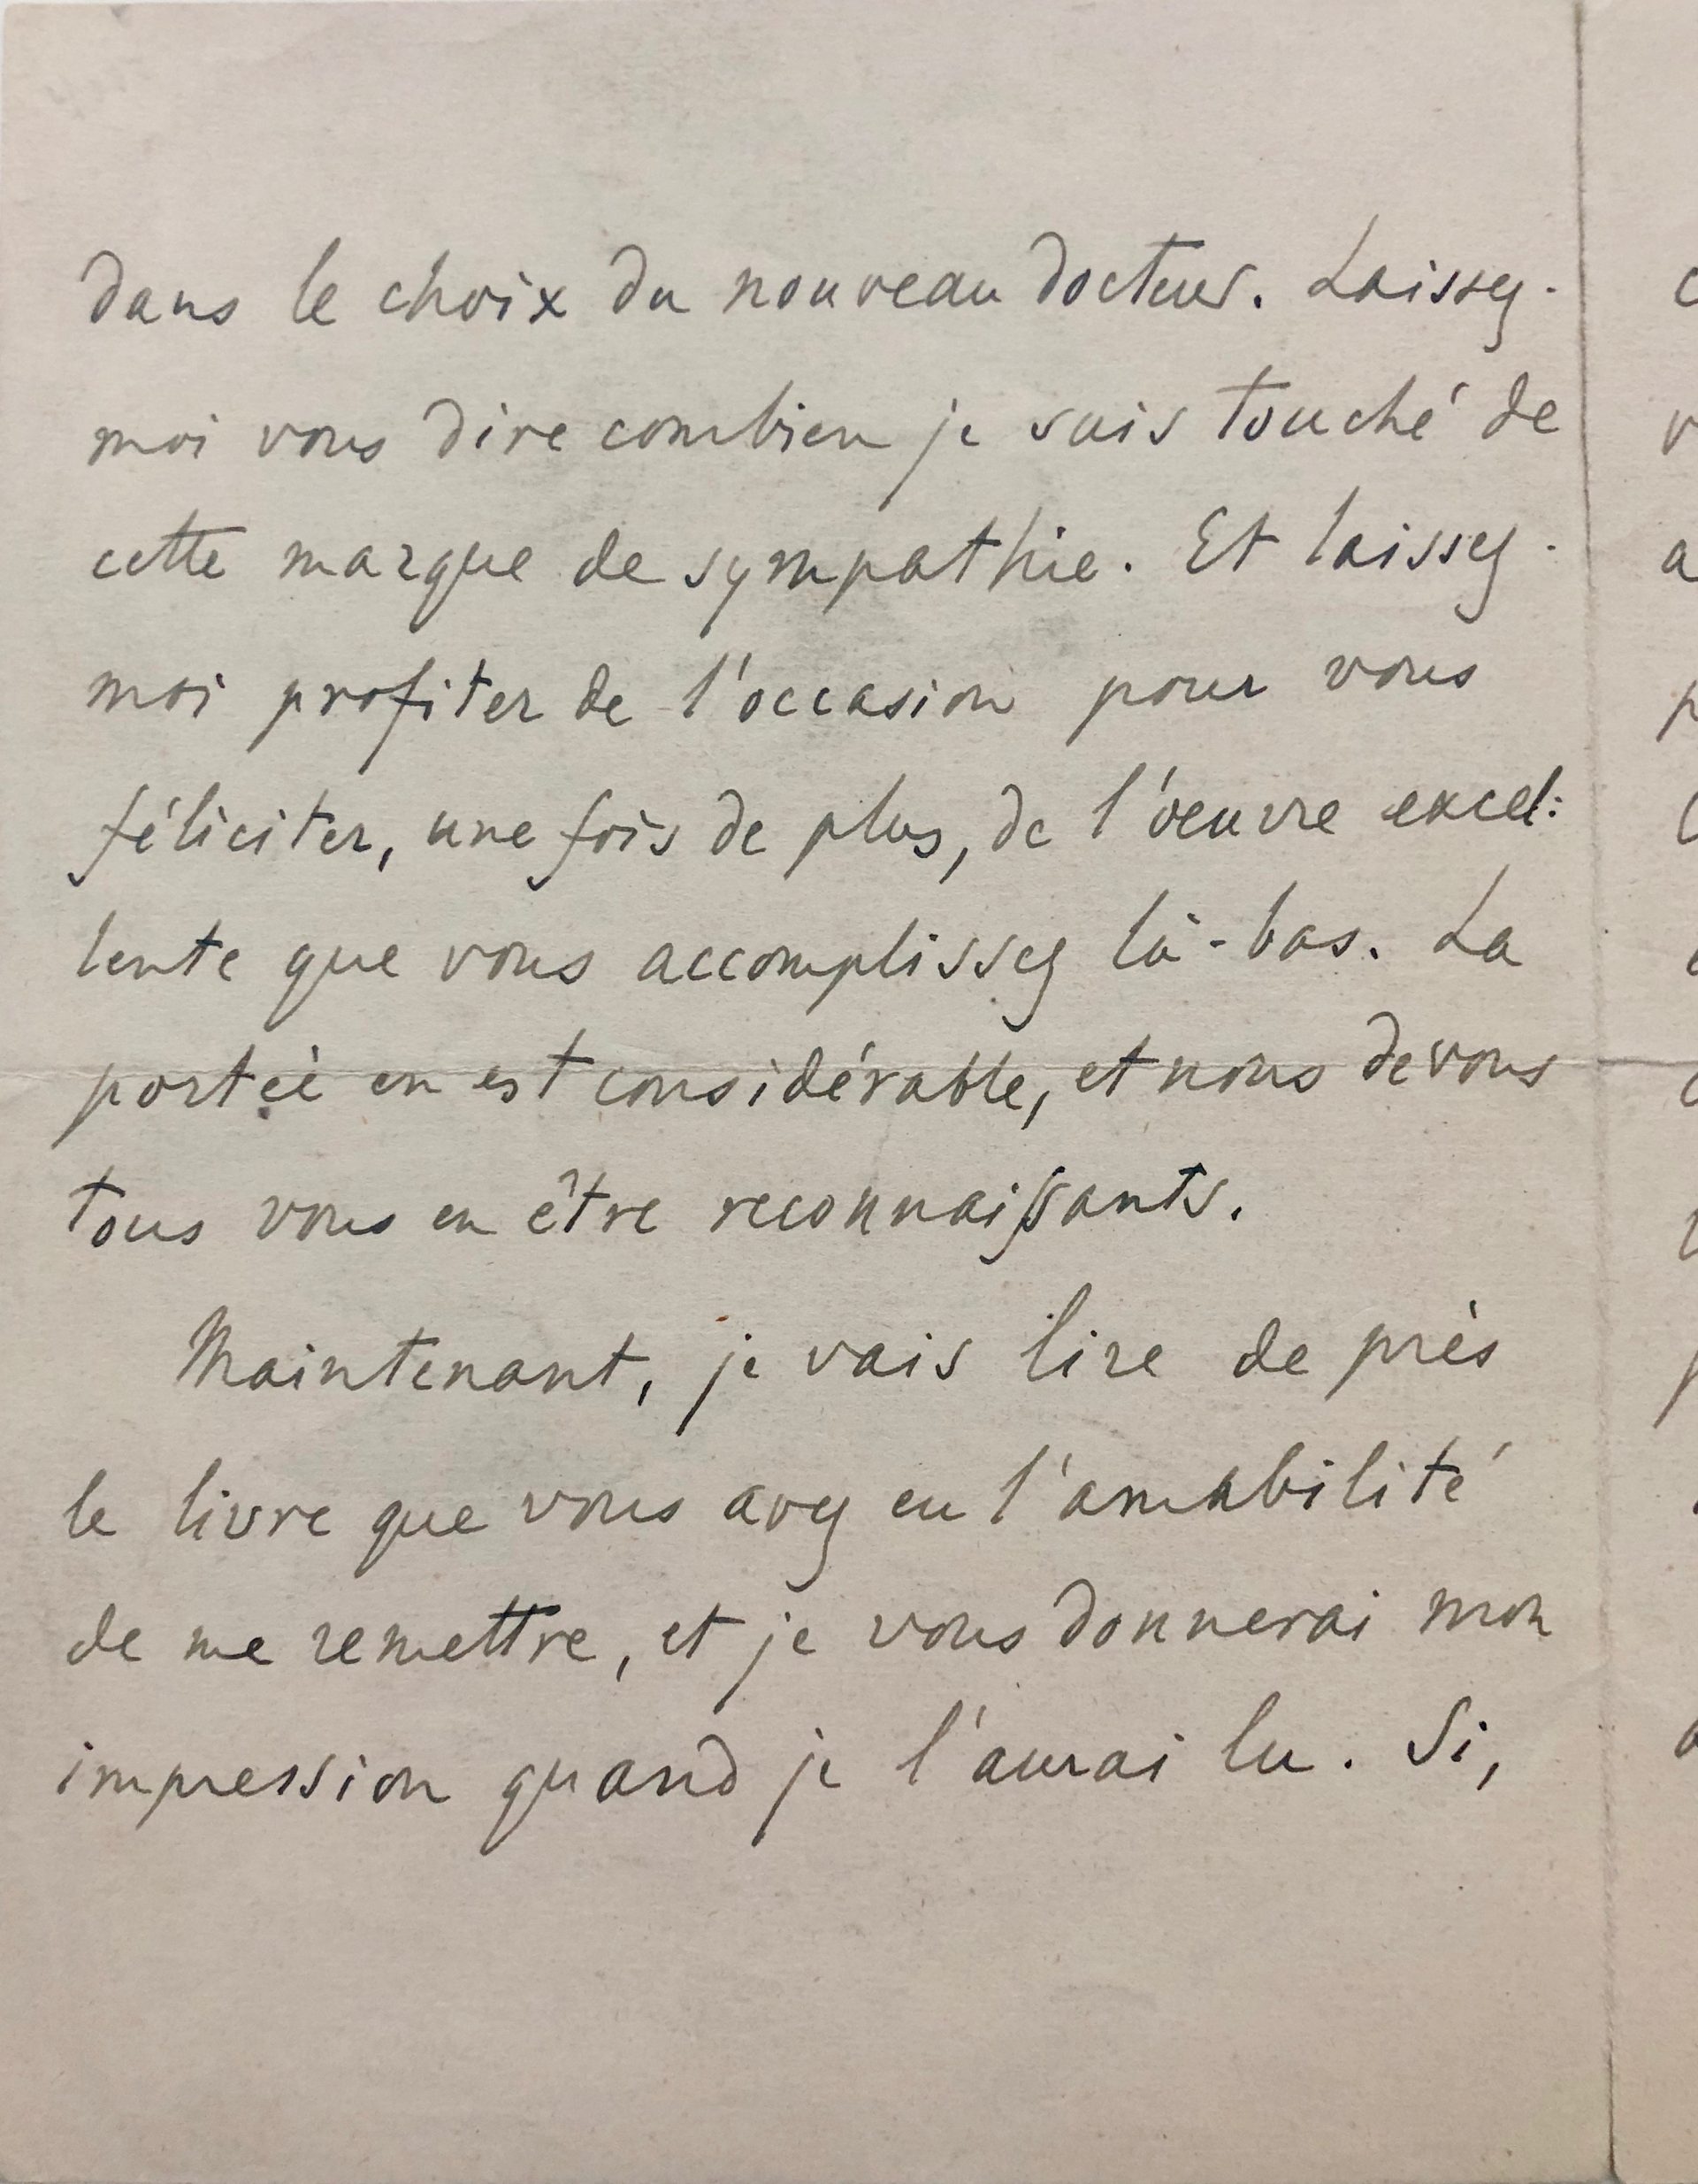 dans le choix du nouveau docteur. Laissez-
moi vous dire combien je suis touché de
cette marque de sympathie. Et laissez-
moi profiter de l'occasion pour vous
féliciter, une fois de plus, de l'oeuvre excel-
lente que vous accomplissez là-bas. La
portée en est considérable, et nous devons
tous vous en être reconnaissants.
Maintenant, je vais lire de près
le livre que vous avez eu l'amabilité
de me remettre, et je vous donnerai mon
impression quand je l'aurai lu. Si,